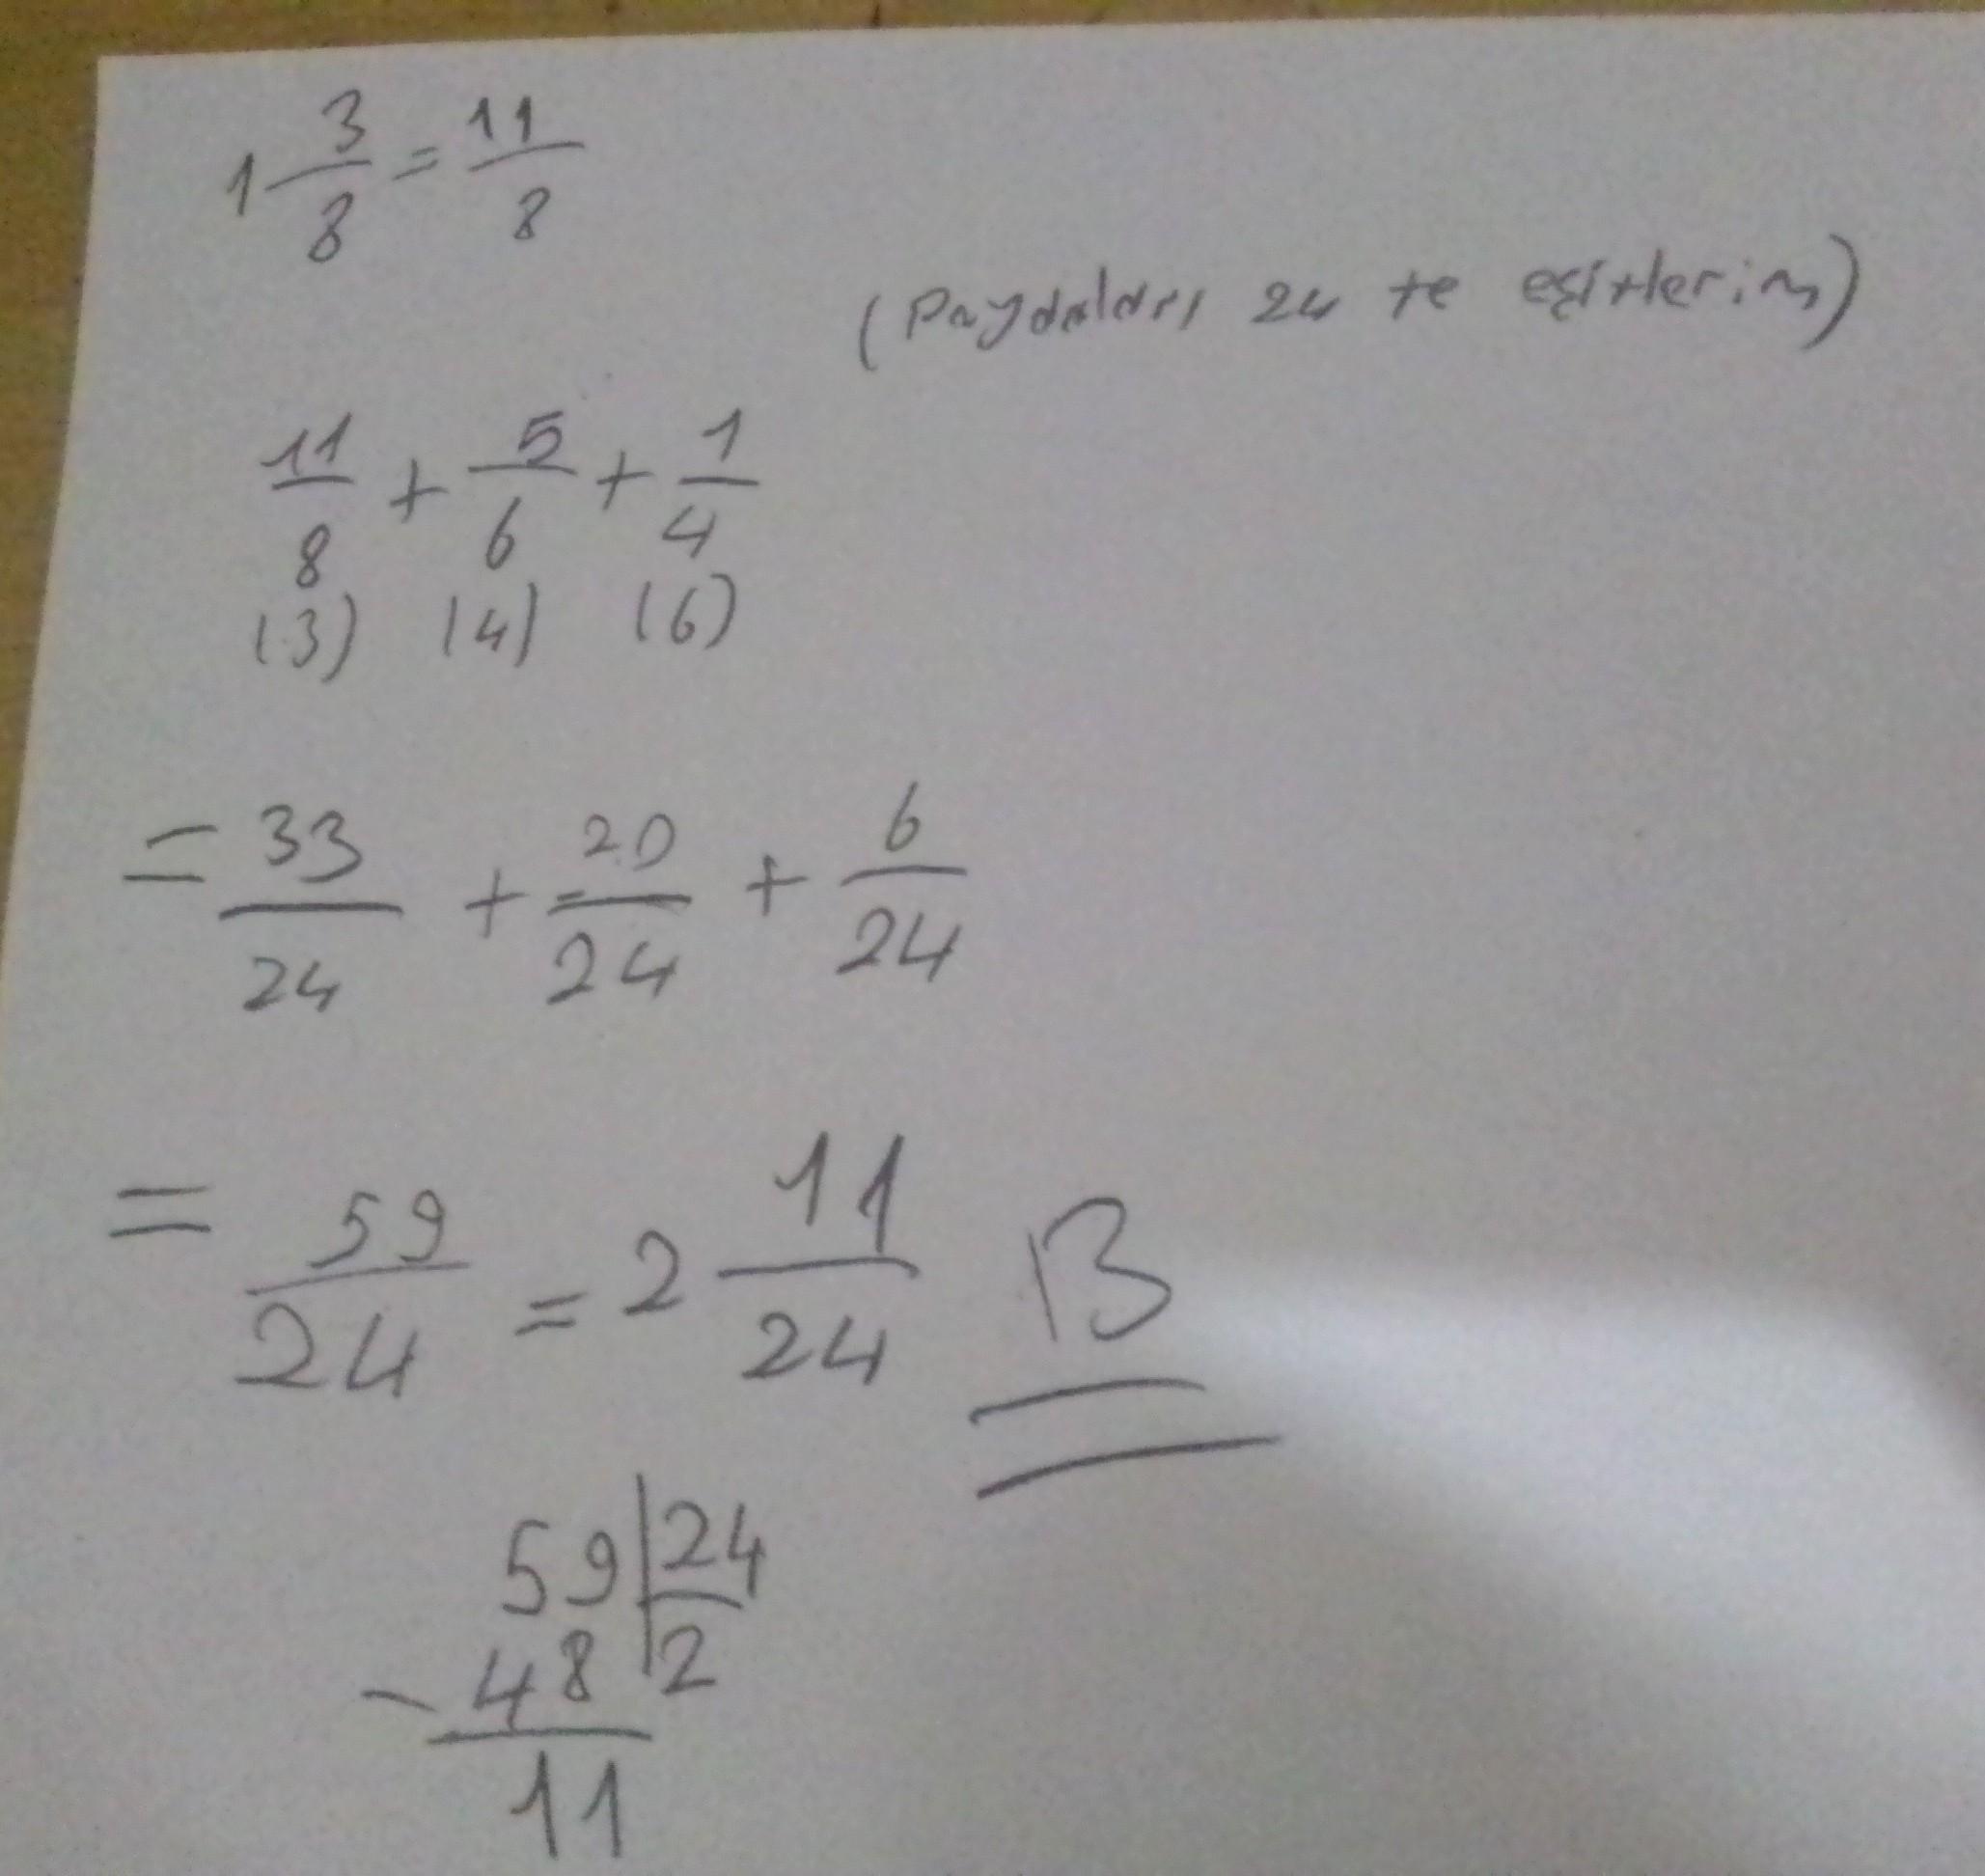 1 3/8 = 11/8
(Paydaları 24 te eşitlerim)
11/8 + 5/6 + 1/4
(3) (4) (6)
= 33/24 + 20/24 + 6/24
= 59/24 = 2 11/24 B
59 | 24
- 48 | 2
11